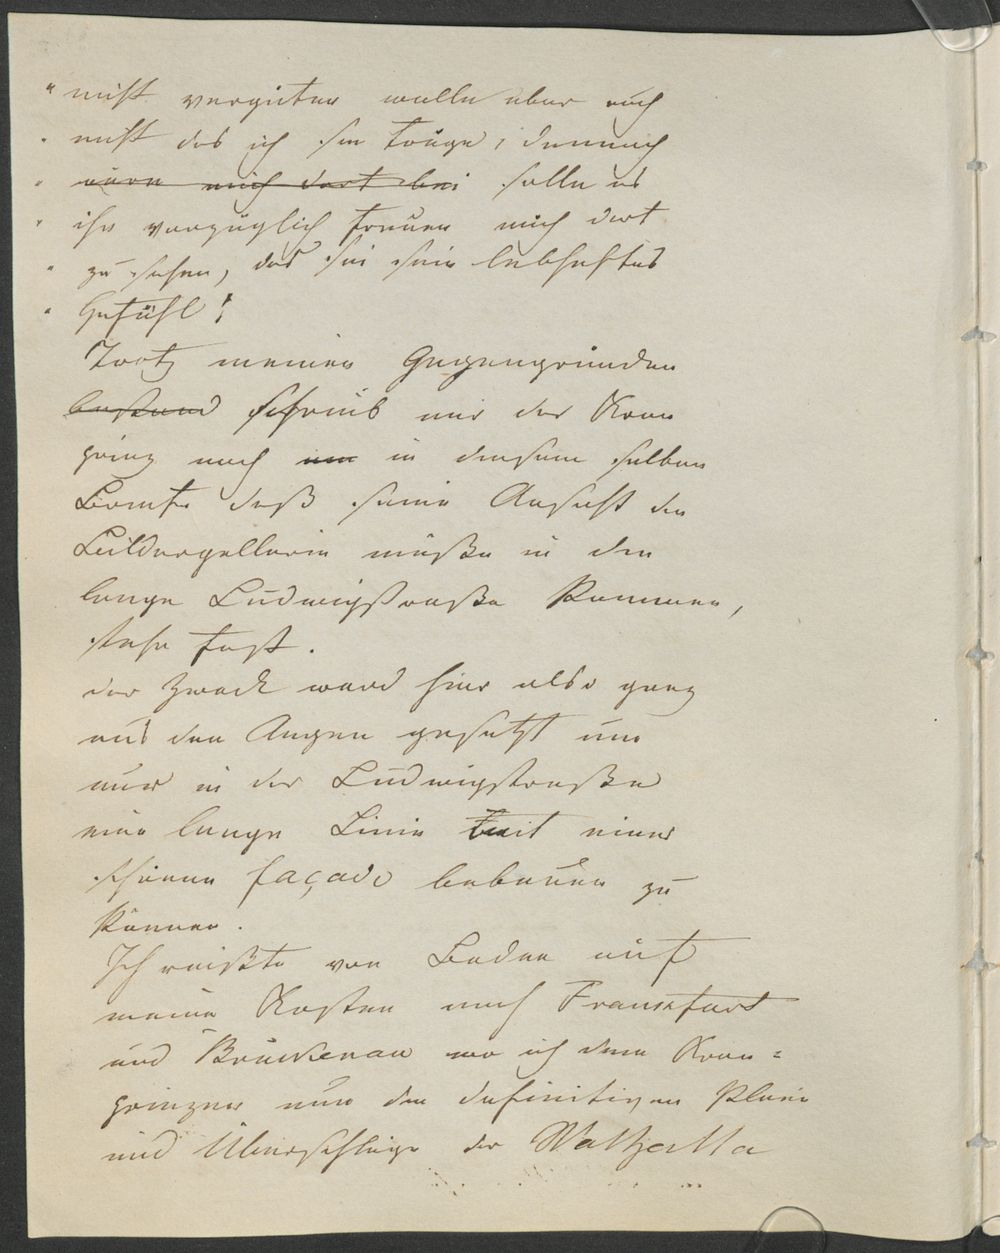 " nicht vergüten wolle aber auch
" nicht das ich sie trüge, dennoch
" wäre mich dort bei solle es
" ihn vorzüglich freuen mich dort
" zu sehen, das sei sein lebhaftes
" Gefühl!
Trotz meinen Gegengründen
bestand schrieb mir der Kron
prinz noch in diesem selben
Briefe daß seine Ansicht die
Bildergallerie müße in die
lange Ludwigstraße kommen,
stehe fest.
der Zweck ward hier also ganz
aus den Augen gesetzt um
nur in der Ludwigstraße
eine lange Linie mit einer
schönen façade bebauen zu
können.
Ich reißte von Baden auf
meine Kosten nach Frankfurt
und Brückenau wo ich dem Kron=
prinzen nun die definitiven Pläne
und Überschläge der Walhalla